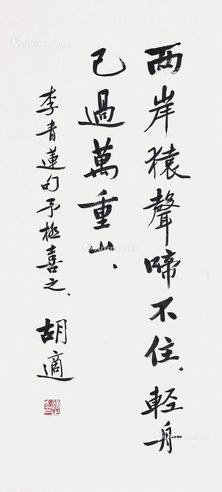 两岸猿聲啼不住、輕舟
已過萬重山、
李青蓮句予極喜之、
胡適